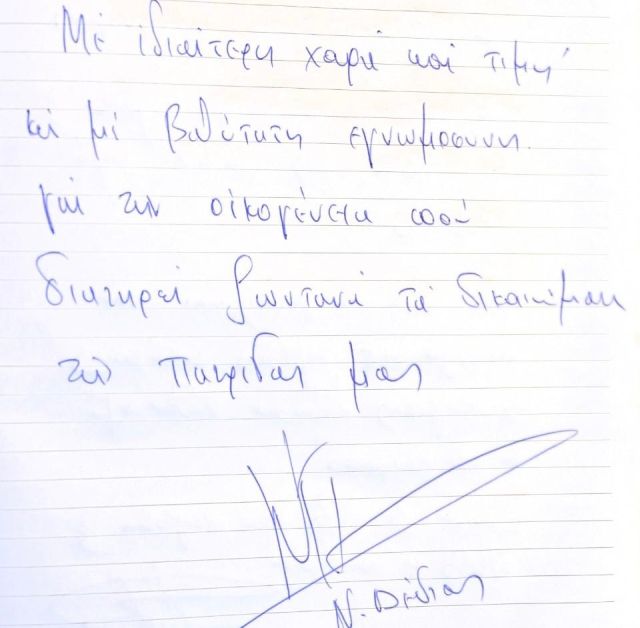 Με ιδιαίτερη χαρά και τιμή
και με βαθύτατη ευγνωμοσύνη
για την οικογένεια που
διατηρεί ζωντανά τα δικαιώματα
της Πατρίδας μας
Ν. Δένδιας